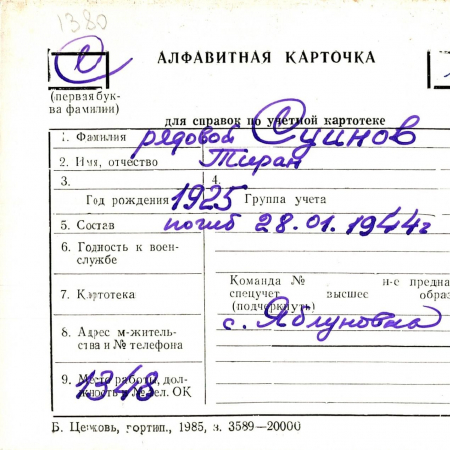 1380
С
АЛФАВИТНАЯ КАРТОЧКА
(первая бук-
ва фамилии)
для справок по учетной картотеке
1. Фамилия рядовой Суинов
2. Имя, отчество Тиран
3.
4.
Год рождения 1925 Группа учета
5. Состав погиб 28.01.1944г
6. Годность к воен-
службе
Команда № н-е предна
7. Картотека спецучет высшее обра
(подчеркнуть)
8. Адрес м-житель- с. Яблуновка
ства и № телефона
9. Место работы, дол-
жность и № тел. ОК
1348
Б. Церковь, гортип., 1985, з. 3589—20000